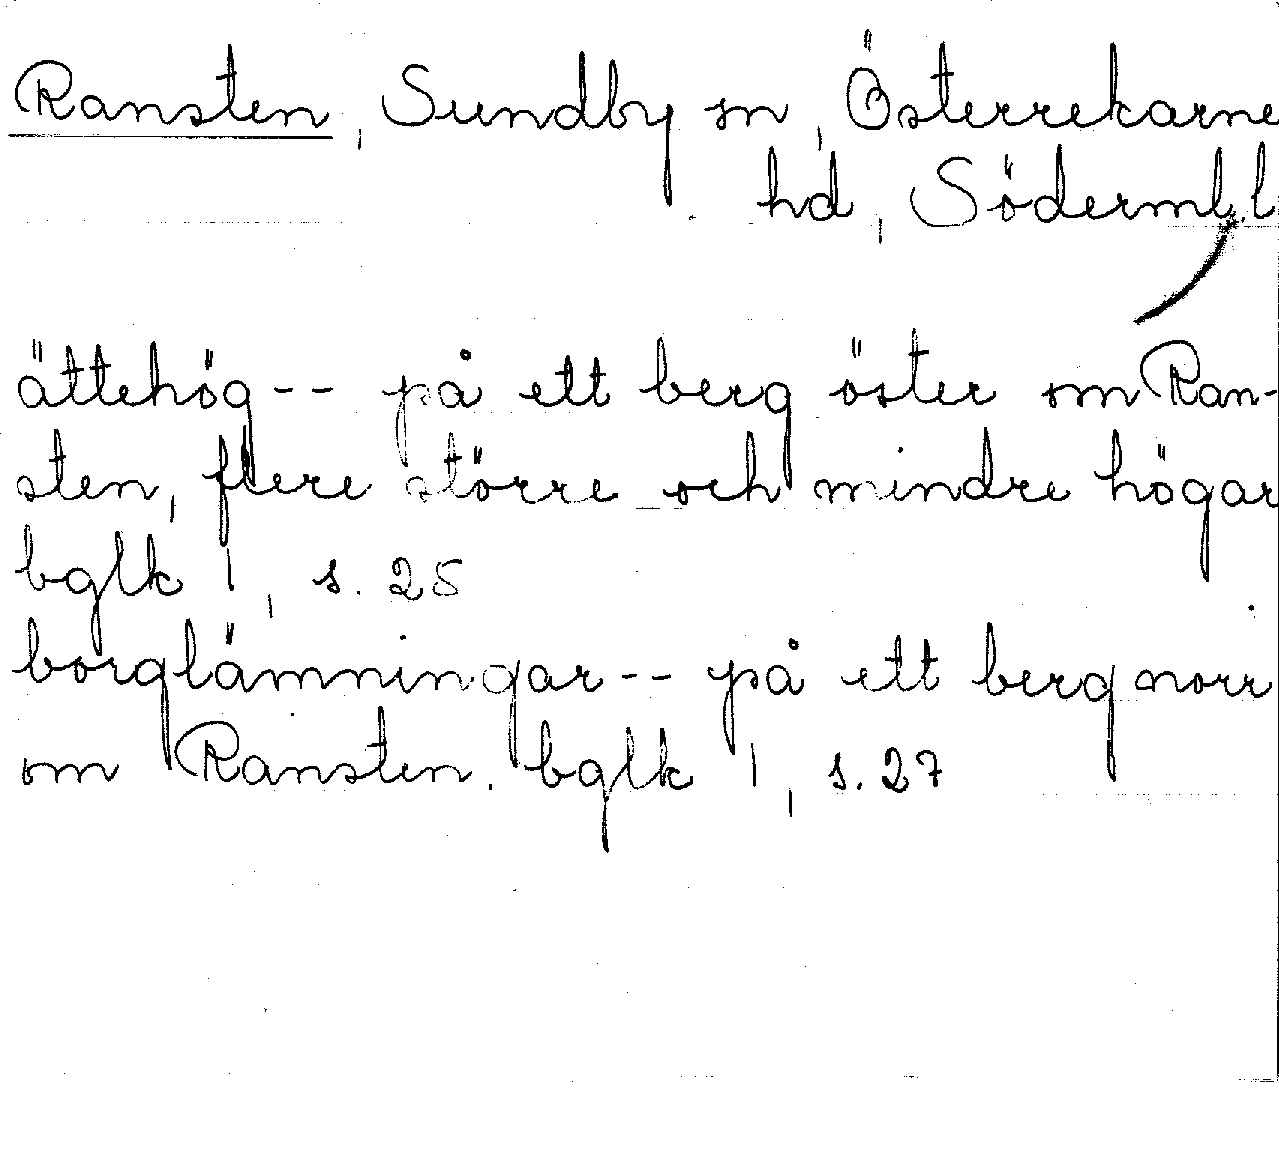 Ransten, Sundby sn, Österrekarne
hd, Söderml. l
ättehög -- på ett berg öster om Ran-
sten, flere större och mindre högar
bglk 1, s. 25
borglämningar -- på ett berg norr
om Ransten. bglk 1, s. 27